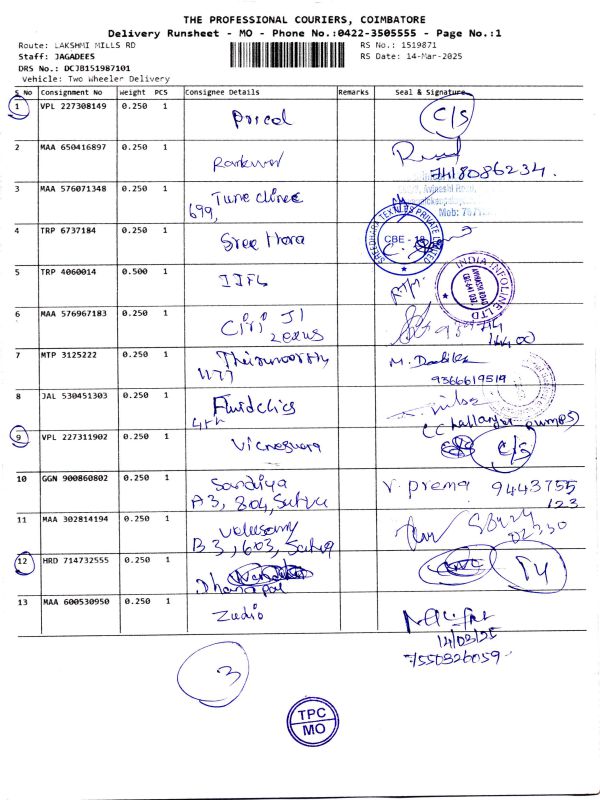 THE PROFESSIONAL COURIERS, COIMBATORE
Delivery Runsheet - MO - Phone No.:0422-3505555 - Page No.:1
Route: LAKSHMI MILLS RD
RS No.: 1519871
Staff: JAGADEES
RS Date: 14-Mar-2025
DRS No.: DCJB151987101
Vehicle: Two Wheeler Delivery
S No Consignment No Weight PCS Consignee Details Remarks Seal & Signature
1 VPL 227308149 0.250 1 Pricol C/S
2 MAA 650416897 0.250 1
7418086234.
3 MAA 576071348 0.250 1 Tune clinee
699,
Avinashi Road,
Mob:
4 TRP 6737184 0.250 1 Sree Hara
SREEDHARA TEXTILES PRIVATE LIMITED
CBE - 18
5 TRP 4060014 0.500 1 IIFL
INDIA INFOLINE LTD
AVINASHI ROAD
6 MAA 576967183 0.250 1
7 MTP 3125222 0.250 1 Thirumoorthy
1177
9366619519
8 JAL 530451303 0.250 1 Fluidclics
4th
9 VPL 227311902 0.250 1 Vicneswara C/S
10 GGN 900860802 0.250 1 Sandiya
A3, 804,
V. prema 9443755
123
11 MAA 302814194 0.250 1
B3, 603,
02330
12 HRD 714732555 0.250 1
Dhanapal
13 MAA 600530950 0.250 1 Zudio
14/03/25
7550326059
3
TPC
MO